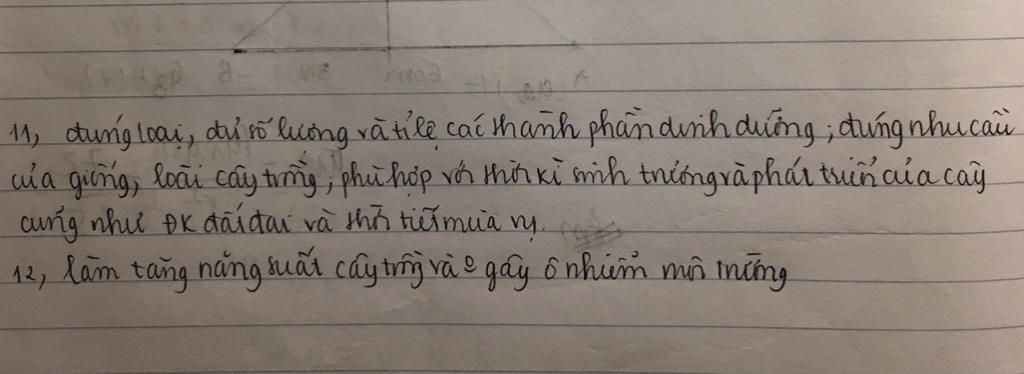 11, đúng loại, đủ số lượng và tỉ lệ các thành phần dinh dưỡng; đúng nhu cầu
của giống, loài cây trồng; phù hợp với thời kì sinh trưởng và phát triển của cây
cũng như ĐK đất đai và thời tiết mùa vụ.
12, làm tăng năng suất cây trồng và o gây ô nhiễm môi trường